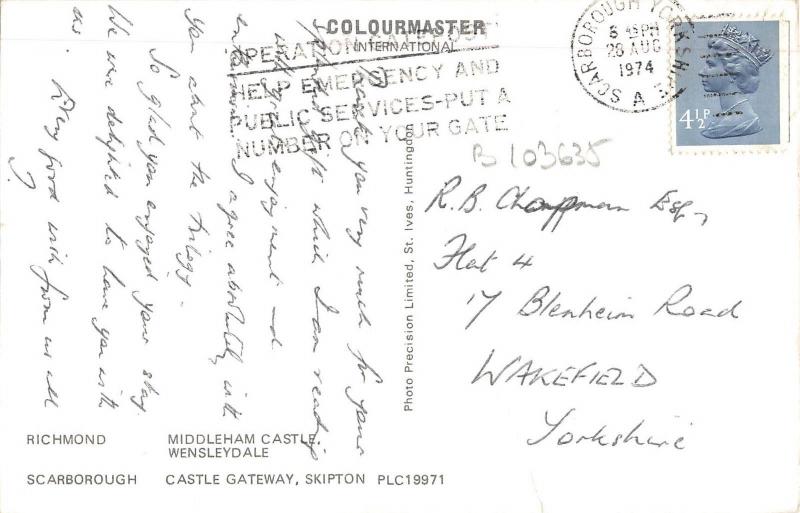 COLOURMASTER
INTERNATIONAL
OPERATION GATEPOST
HELP EMERGENCY AND
PUBLIC SERVICES-PUT A
NUMBER ON YOUR GATE
SCARBOROUGH YORKSHIRE
PM
28 AUG
1974
A
4½P
B 103635
Thank you very much for your
gift which I am reading
with great enjoyment and
I agree absolutely with
you about the trilogy -
So glad you enjoyed your stay.
We were delighted to have you with
us. Very good wishes from us all
R.B. Chapman Esq,
Flat 4
17 Blenheim Road
WAKEFIELD
Yorkshire
Photo Precision Limited, St. Ives, Huntingdon
RICHMOND MIDDLEHAM CASTLE,
WENSLEYDALE
SCARBOROUGH CASTLE GATEWAY, SKIPTON PLC19971